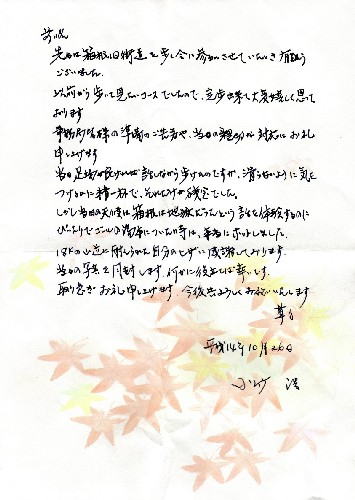 前略
先日は箱根旧街道を歩く会に参加させていただき有難う
ございました。
以前から歩いて見たいコースでしたので、完歩出来て大変嬉しく思って
おります
事務局皆様の準備のご苦労や、当日の親切な対応にお礼
申し上げます
当日足場が良ければ話しながら歩けたのですが、滑らないように気を
つけるのに精一杯で、それだけが残念でした。
しかし当日の天候は箱根は地獄だったという話を体験するのに
ぴったりで
の湯につかった時は、本当にホッとしました。
の山道に耐えられた自分のヒザに感謝しております。
当日の写真を同封します。何かに役立てば幸いです。
取り急ぎお礼申し上げます。今後共よろしくお願いいたします
草々
平成14年10月26日